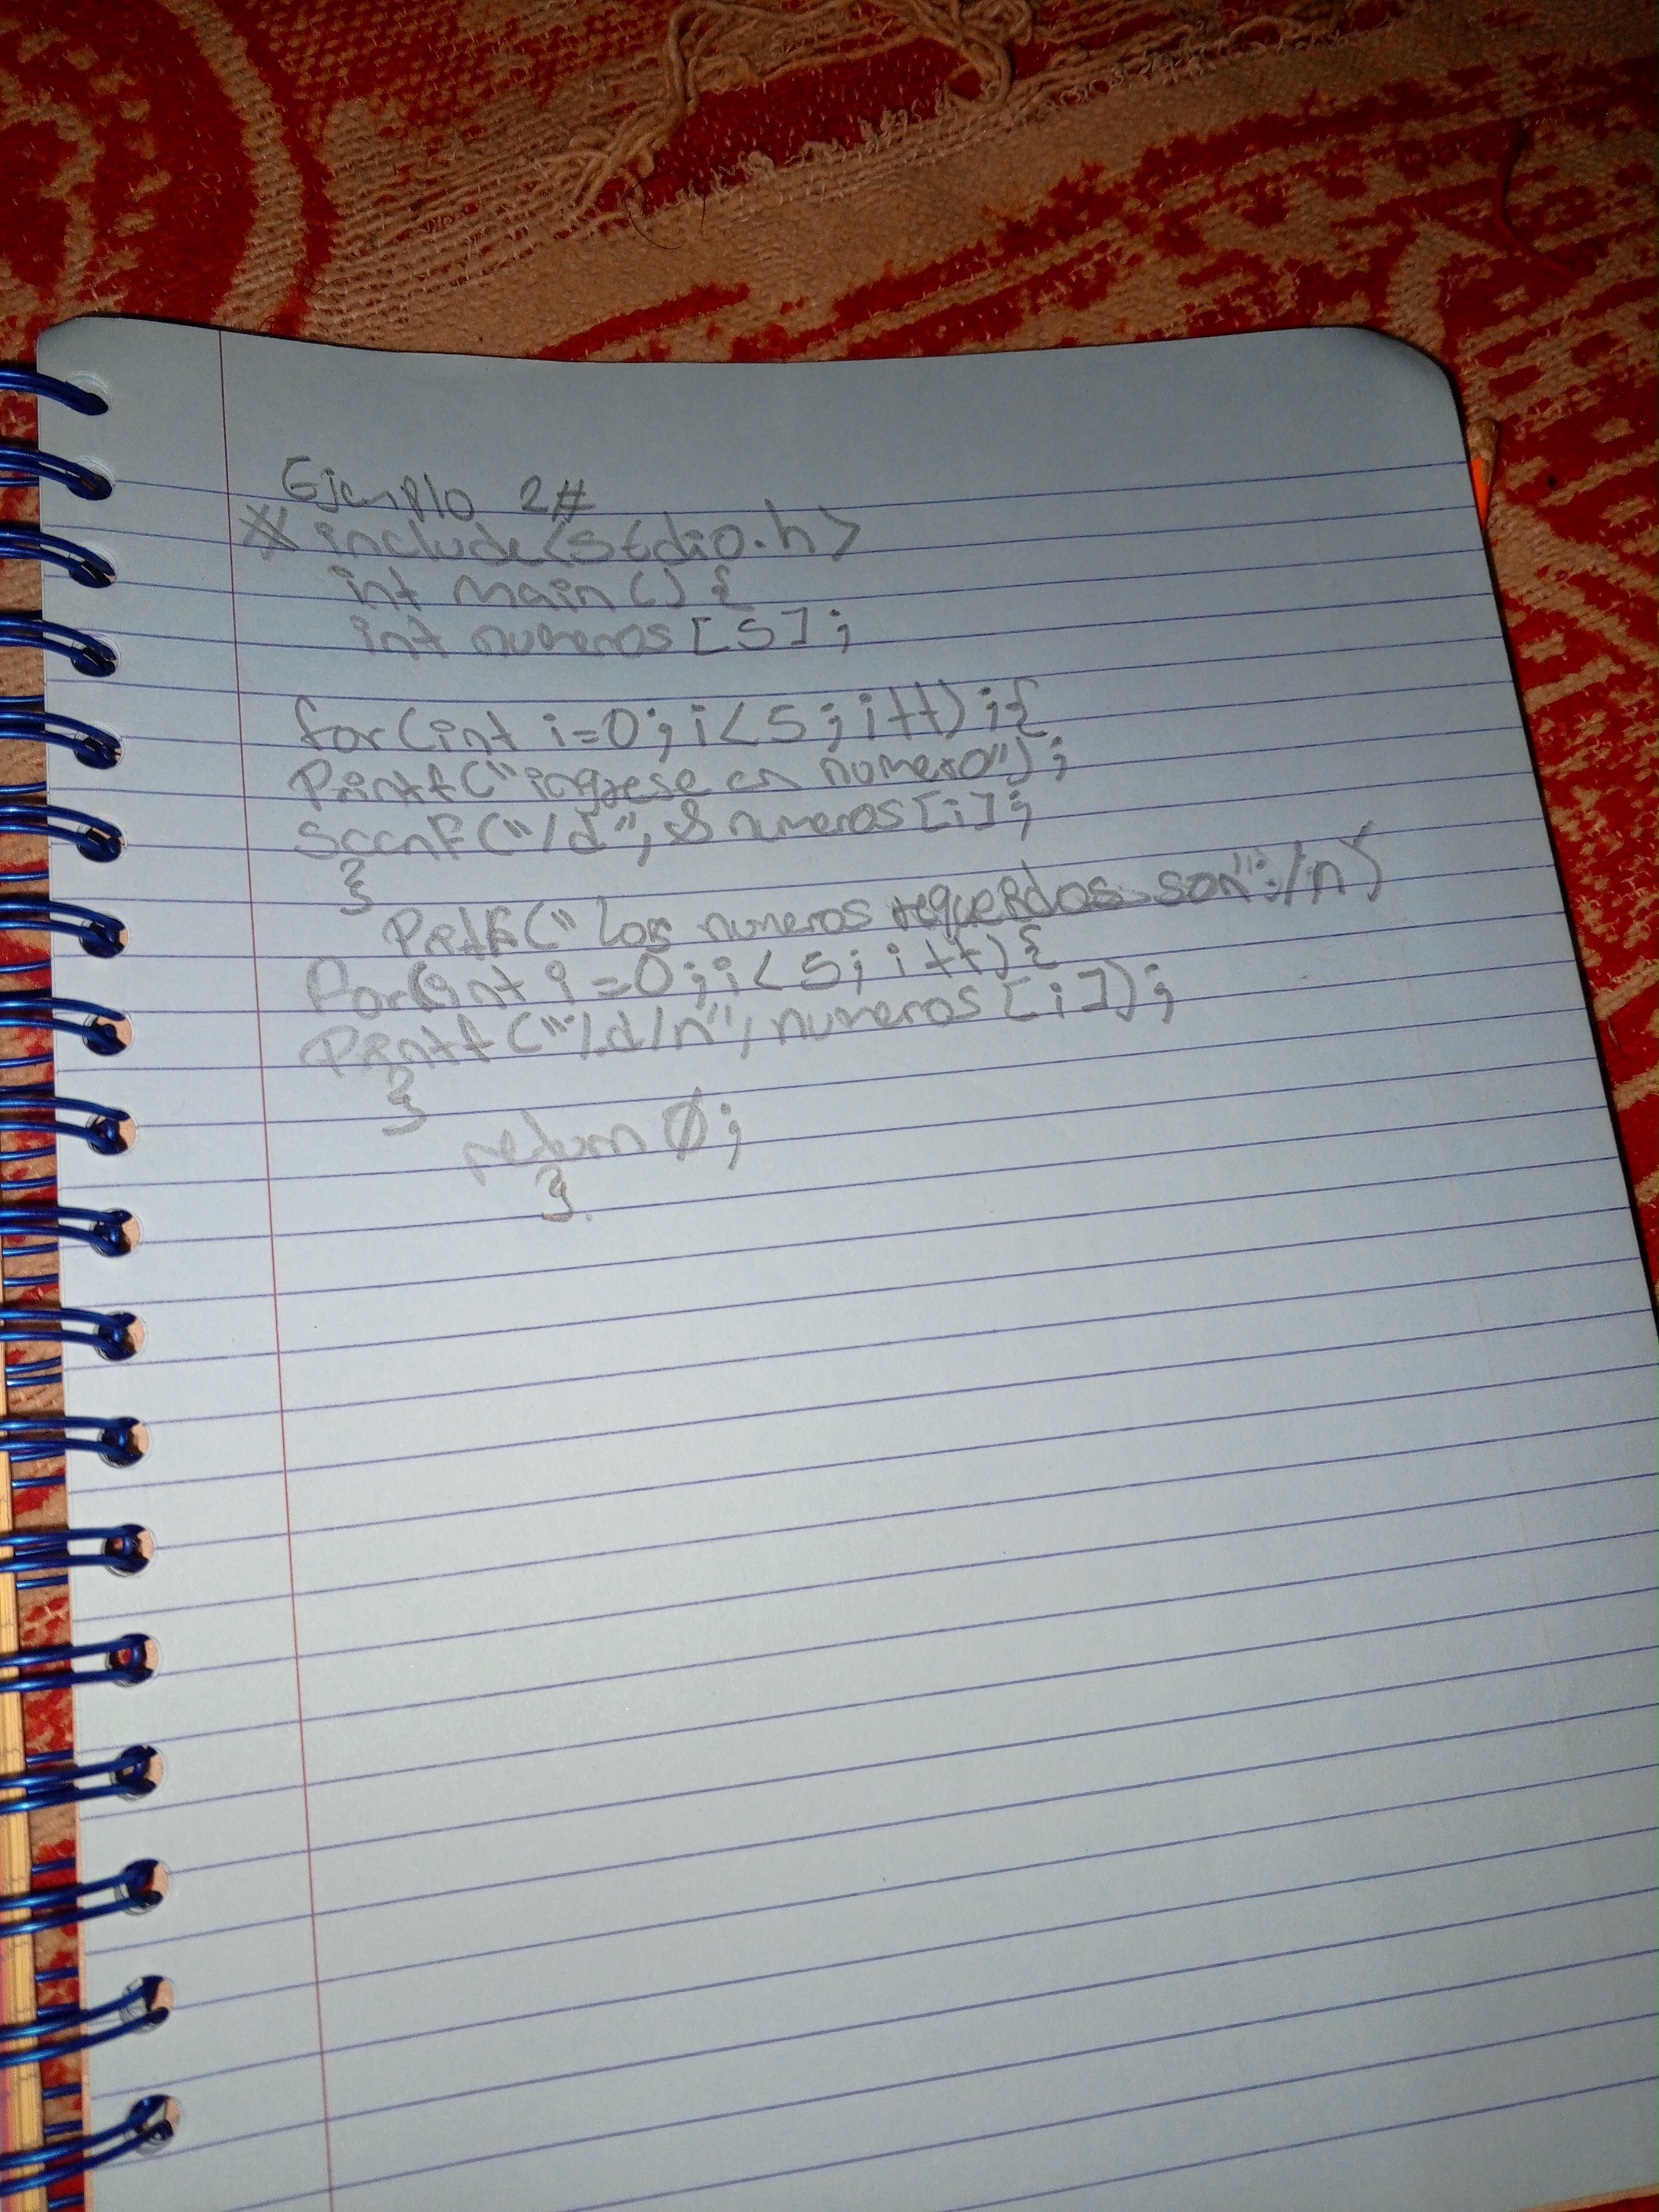 Ejemplo 2#
# include<stdio.h>
int main () {
int numeros [5];
for (int i=0; i<5; i++) ; {
Printf("ingrese en numero");
Scanf ("/d", & numeros [i];
}
Prtf ("Los numeros requeridos son":/n")
For (int i=0; i<5; i++) {
Printf ("%d/n", numeros [i]);
}
return 0;
}.